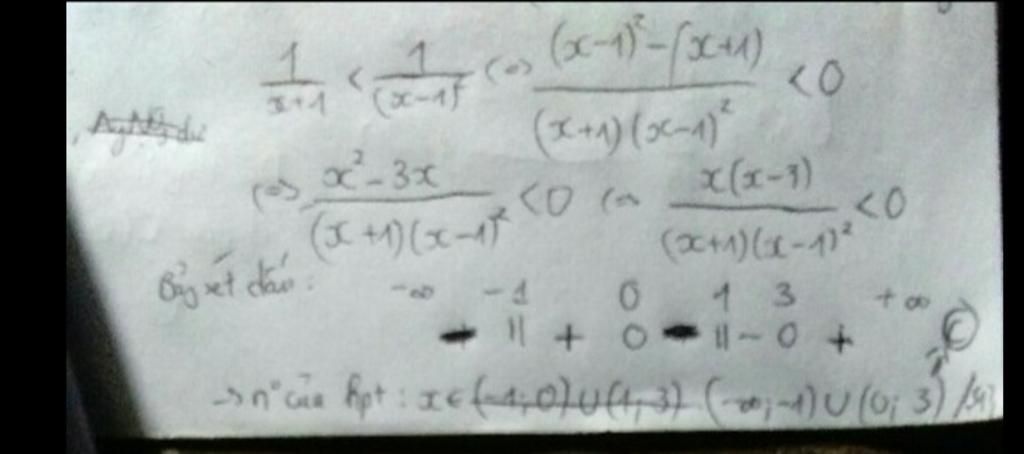 1/(x+1) < 1/(x-1)² <=> ((x-1)² - (x+1))/((x+1)(x-1)²) < 0
<=> (x² - 3x)/((x+1)(x-1)²) < 0 <=> x(x-3)/((x+1)(x-1)²) < 0
Bảng xét dấu: -∞ -1 0 1 3 +∞
- || + 0 - || - 0 + C
-> n° của hpt: x ∈ (-1; 0) ∪ (1; 3) (-∞; -1) ∪ (0; 3)